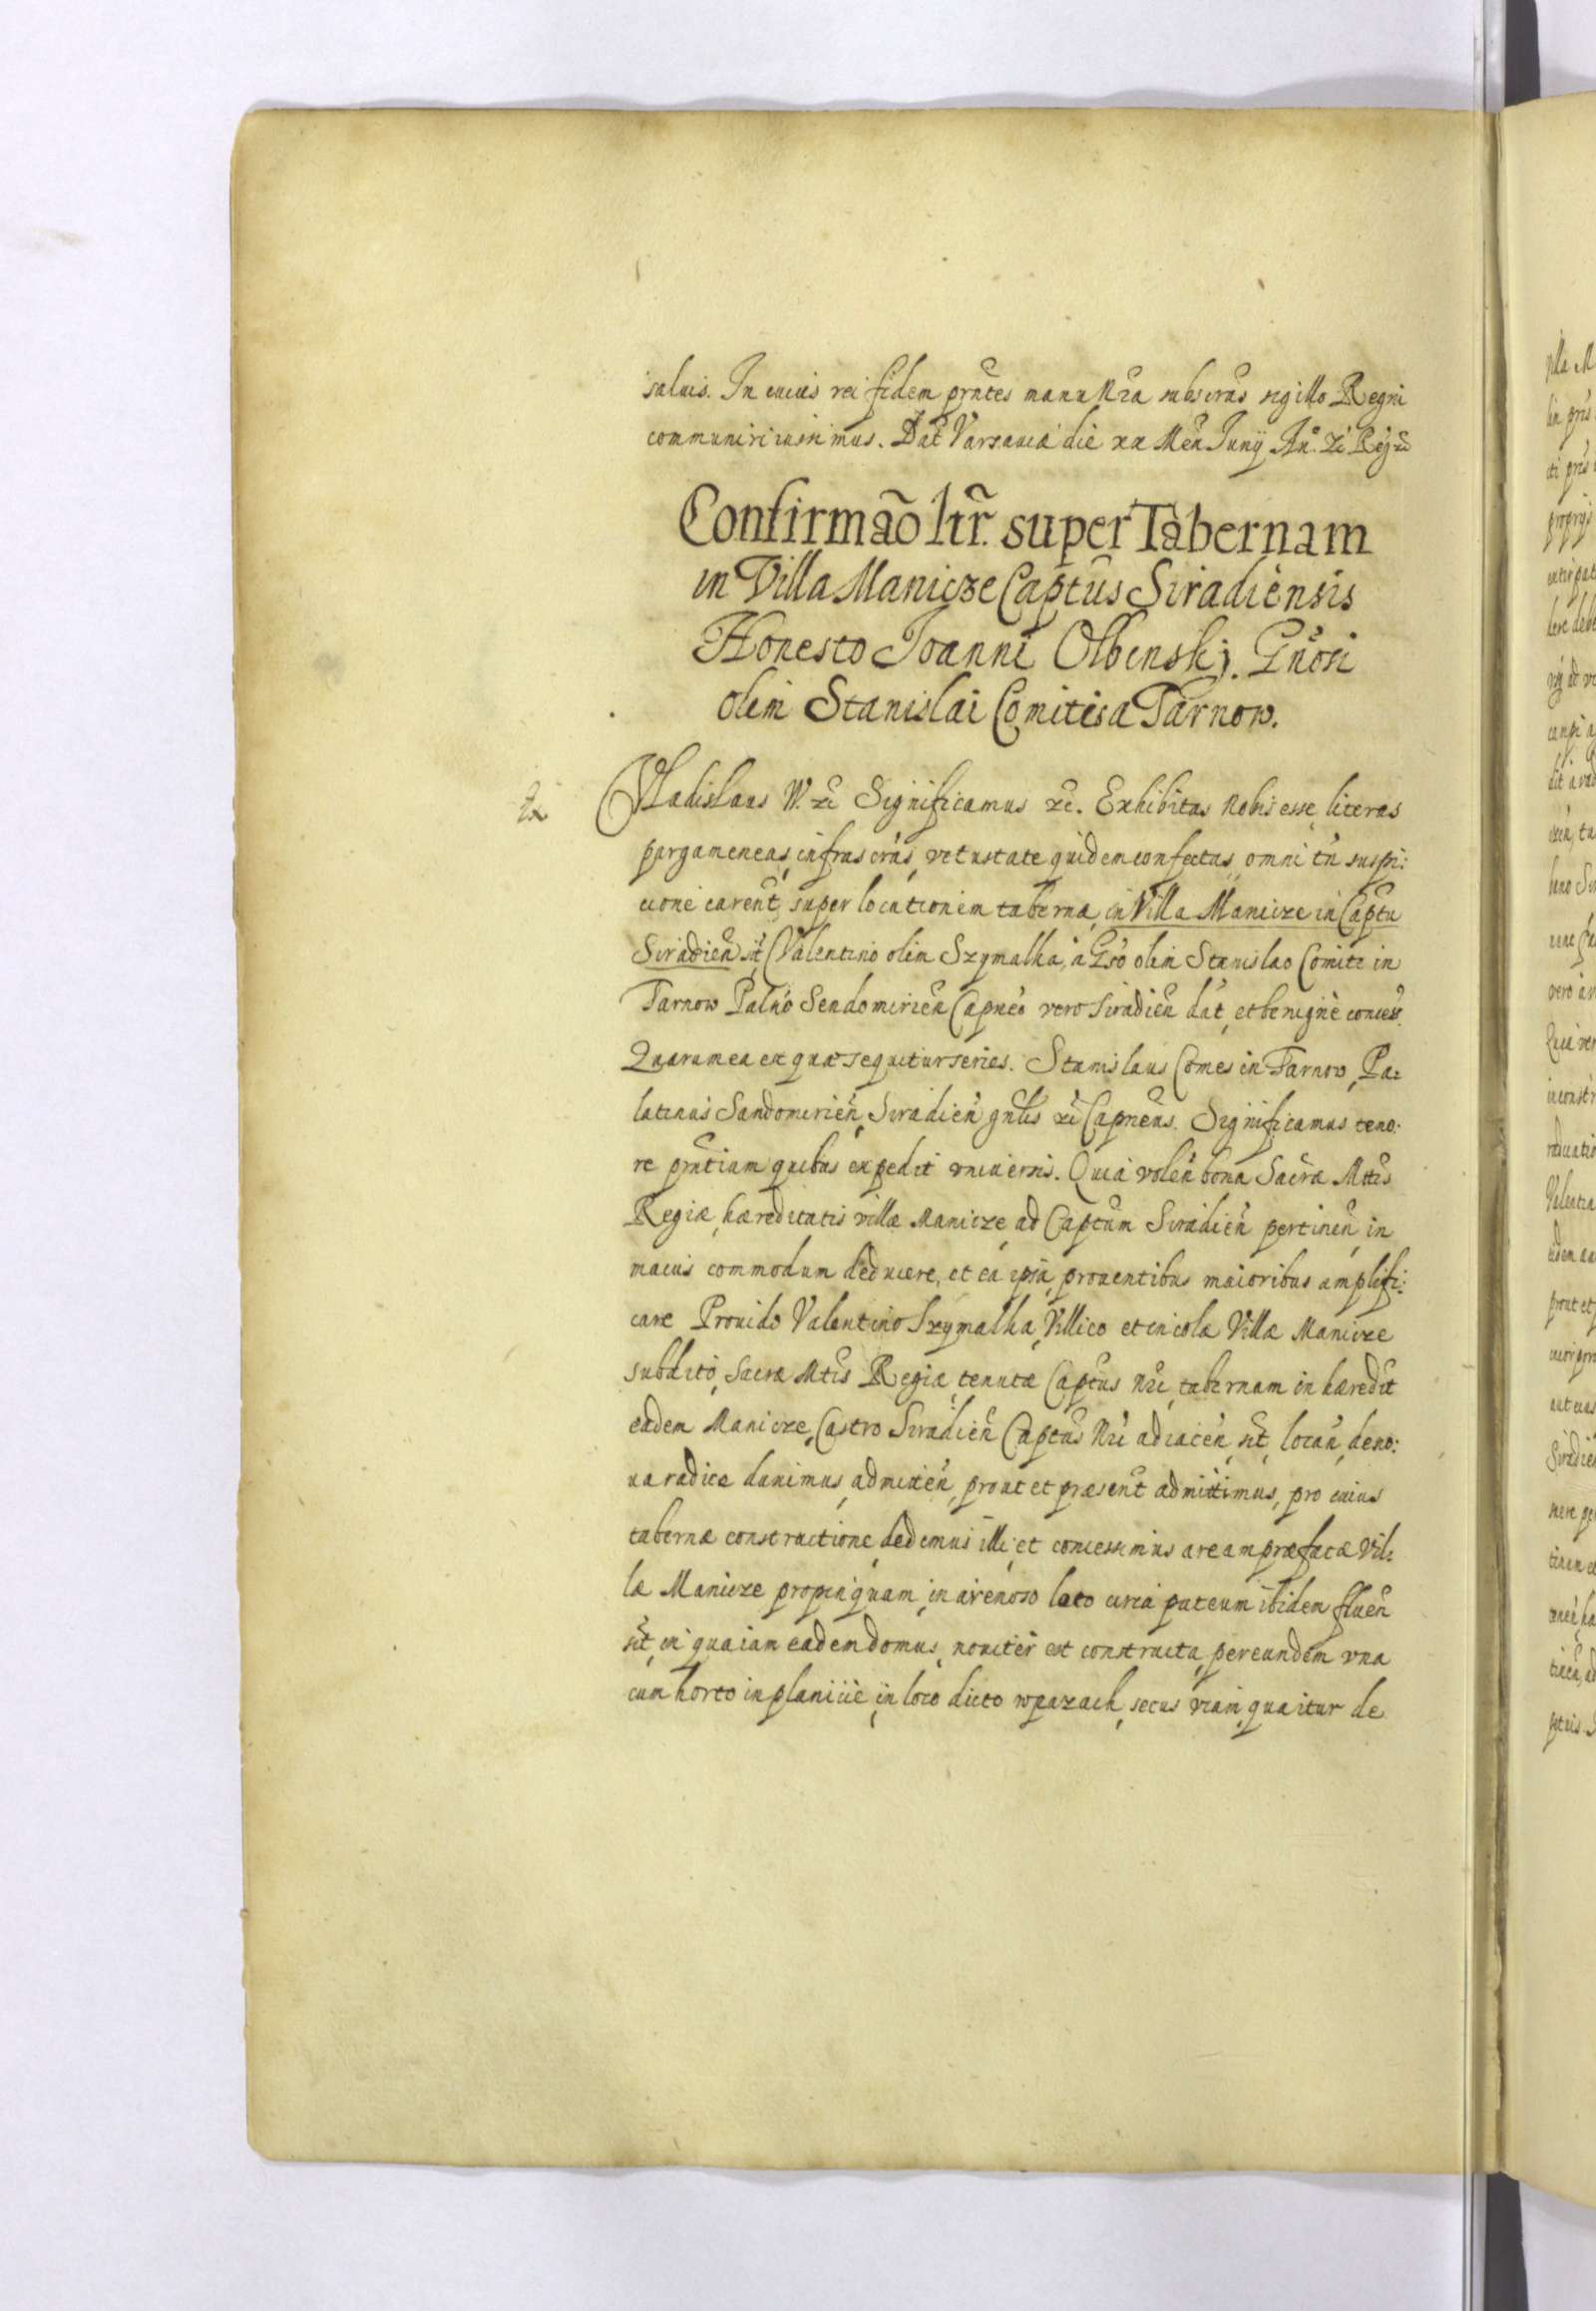 saluis. In cuius rei fidem prñtes manu Nrã subscrãs sigillo Regni
communiri iussimus. Dat Varsauiæ die xx Men Junÿ An. zc Reg zc
Confirmão ltr̃. super Tabernam
in Villa Manicze Capt̃us Siradiensis
Honesto Joanni Olbinskj. Gñosi
olim Stanislai Comitis a Tarnow.
Vladislaus IV. zc Significamus zc. Exhibitas Nobis esse literas
pargameneas, infrascrãs, vetustate quidem confectas, omni tñ suspi:
cione carent̃, super locationem tabernæ, in Villa Manicze in Capt̃u
Siradien̄ sit̃, Valentino olim Szymalka, à Gso olim Stanislao Comite in
Tarnow Palñó Sendomirien̄ Capñeo vero Siradien̄ dat̃, et benignè concess̃.
Quarum ea est quæ sequitur series. Stanislaus Comes in Tarnow, Pa:
latinus Sandomirien̄, Siradien̄ gñlis zc Capñeus. Significamus teno:
re prñtium quibus expedit vniuersis. Quia volen̄ bona Sacræ Mttis
Regiæ, hæreditatis villæ Manicze, ad Capt̃um Siradien̄ pertinen̄, in
maius commodum deducere, et ea ipsa, prouentibus maioribus amplifi:
care Prouido Valentino Szymalka, Villico et incolæ Villæ Manicze
subdito, Sacræ Mttis Regiæ, tenutæ Capt̃us Nrĩ, tabernam in hæredit̃
eadem Manicze, Castro Siradien̄ Capt̃us Nrĩ adiacen̄, sit̃, locan̄, de no:
ua radice danimus, admitten̄, prout et præsent̃ admittimus, pro cuius
tabernæ constructione, dedimus illi, et concessimus aream præfatæ Vil:
læ Manicze propinquam, in arenoso loco circa puteum ibidem fluen̄
sit̃, in qua iam eadem domus, nouiter est constructa, per eundem vna
cum horto in planicie, in loco dicto wpazach, secus viam, qua itur de